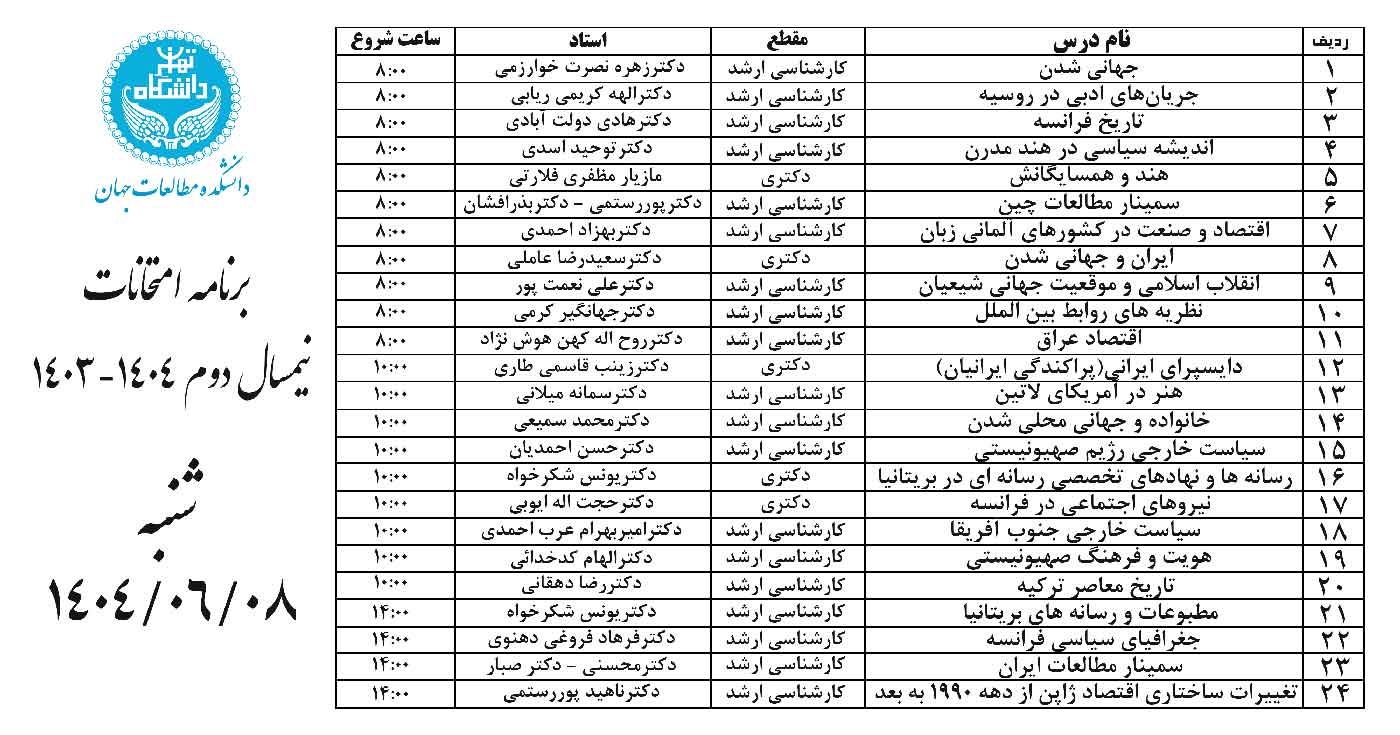 ردیف نام درس مقطع استاد ساعت شروع
۱ جهانی شدن کارشناسی ارشد دکترزهره نصرت خوارزمی ۸:۰۰
۲ جریان‌های ادبی در روسیه کارشناسی ارشد دکترالهه کریمی ریابی ۸:۰۰
۳ تاریخ فرانسه کارشناسی ارشد دکترهادی دولت آبادی ۸:۰۰
۴ اندیشه سیاسی در هند مدرن کارشناسی ارشد دکترتوحید اسدی ۸:۰۰
۵ هند و همسایگانش دکتری مازیار مظفری فلارتی ۸:۰۰
۶ سمینار مطالعات چین کارشناسی ارشد دکترپوررستمی - دکتربذرافشان ۸:۰۰
۷ اقتصاد و صنعت در کشورهای آلمانی زبان کارشناسی ارشد دکتربهزاد احمدی ۸:۰۰
۸ ایران و جهانی شدن دکتری دکترسعیدرضا عاملی ۸:۰۰
۹ انقلاب اسلامی و موقعیت جهانی شیعیان کارشناسی ارشد دکترعلی نعمت پور ۸:۰۰
۱۰ نظریه های روابط بین الملل کارشناسی ارشد دکترجهانگیر کرمی ۸:۰۰
۱۱ اقتصاد عراق کارشناسی ارشد دکترروح اله کهن هوش نژاد ۸:۰۰
۱۲ دایسپرای ایرانی(پراکندگی ایرانیان) دکتری دکترزینب قاسمی طاری ۱۰:۰۰
۱۳ هنر در آمریکای لاتین کارشناسی ارشد دکترسمانه میلانی ۱۰:۰۰
۱۴ خانواده و جهانی محلی شدن کارشناسی ارشد دکترمحمد سمیعی ۱۰:۰۰
۱۵ سیاست خارجی رژیم صهیونیستی کارشناسی ارشد دکترحسن احمدیان ۱۰:۰۰
۱۶ رسانه ها و نهادهای تخصصی رسانه ای در بریتانیا دکتری دکتریونس شکرخواه ۱۰:۰۰
۱۷ نیروهای اجتماعی در فرانسه دکتری دکترحجت اله ایوبی ۱۰:۰۰
۱۸ سیاست خارجی جنوب افریقا کارشناسی ارشد دکترامیربهرام عرب احمدی ۱۰:۰۰
۱۹ هویت و فرهنگ صهیونیستی کارشناسی ارشد دکترالهام کدخدائی ۱۰:۰۰
۲۰ تاریخ معاصر ترکیه کارشناسی ارشد دکتررضا دهقانی ۱۰:۰۰
۲۱ مطبوعات و رسانه های بریتانیا کارشناسی ارشد دکتریونس شکرخواه ۱۴:۰۰
۲۲ جغرافیای سیاسی فرانسه کارشناسی ارشد دکترفرهاد فروغی دهنوی ۱۴:۰۰
۲۳ سمینار مطالعات ایران کارشناسی ارشد دکترمحسنی - دکتر صبار ۱۴:۰۰
۲۴ تغییرات ساختاری اقتصاد ژاپن از دهه ۱۹۹۰ به بعد کارشناسی ارشد دکترناهید پوررستمی ۱۴:۰۰
دانشگاه تهران
دانشکده مطالعات جهان
برنامه امتحانات
نیمسال دوم ۱۴۰۴-۱۴۰۳
شنبه
۱۴۰۴/۰۶/۰۸